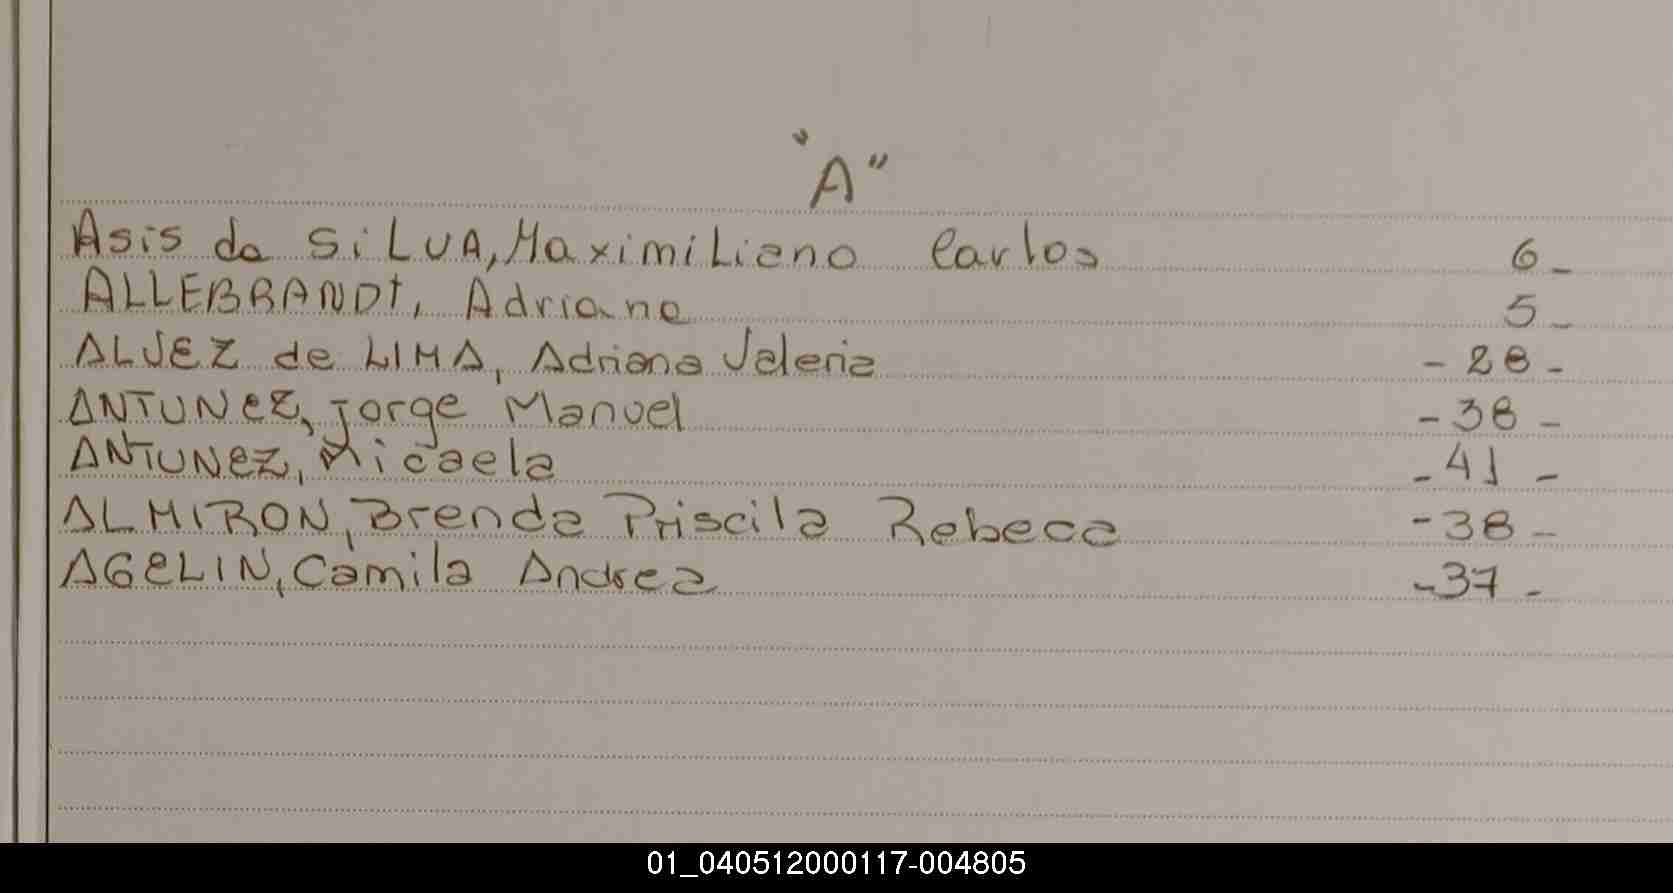 "A"
Asis da SiLVA, MaximiLiano Carlos 6-
ALLEBRANDt, Adriana 5-
ALVEZ de LIMA, Adriana Valeria -28-
ANTUNEZ, Jorge Manuel -38-
ANTUNEZ, Micaela -41-
ALMIRON, Brenda Priscila Rebeca -38-
AGELIN, Camila Andrea -37-
01_040512000117-004805